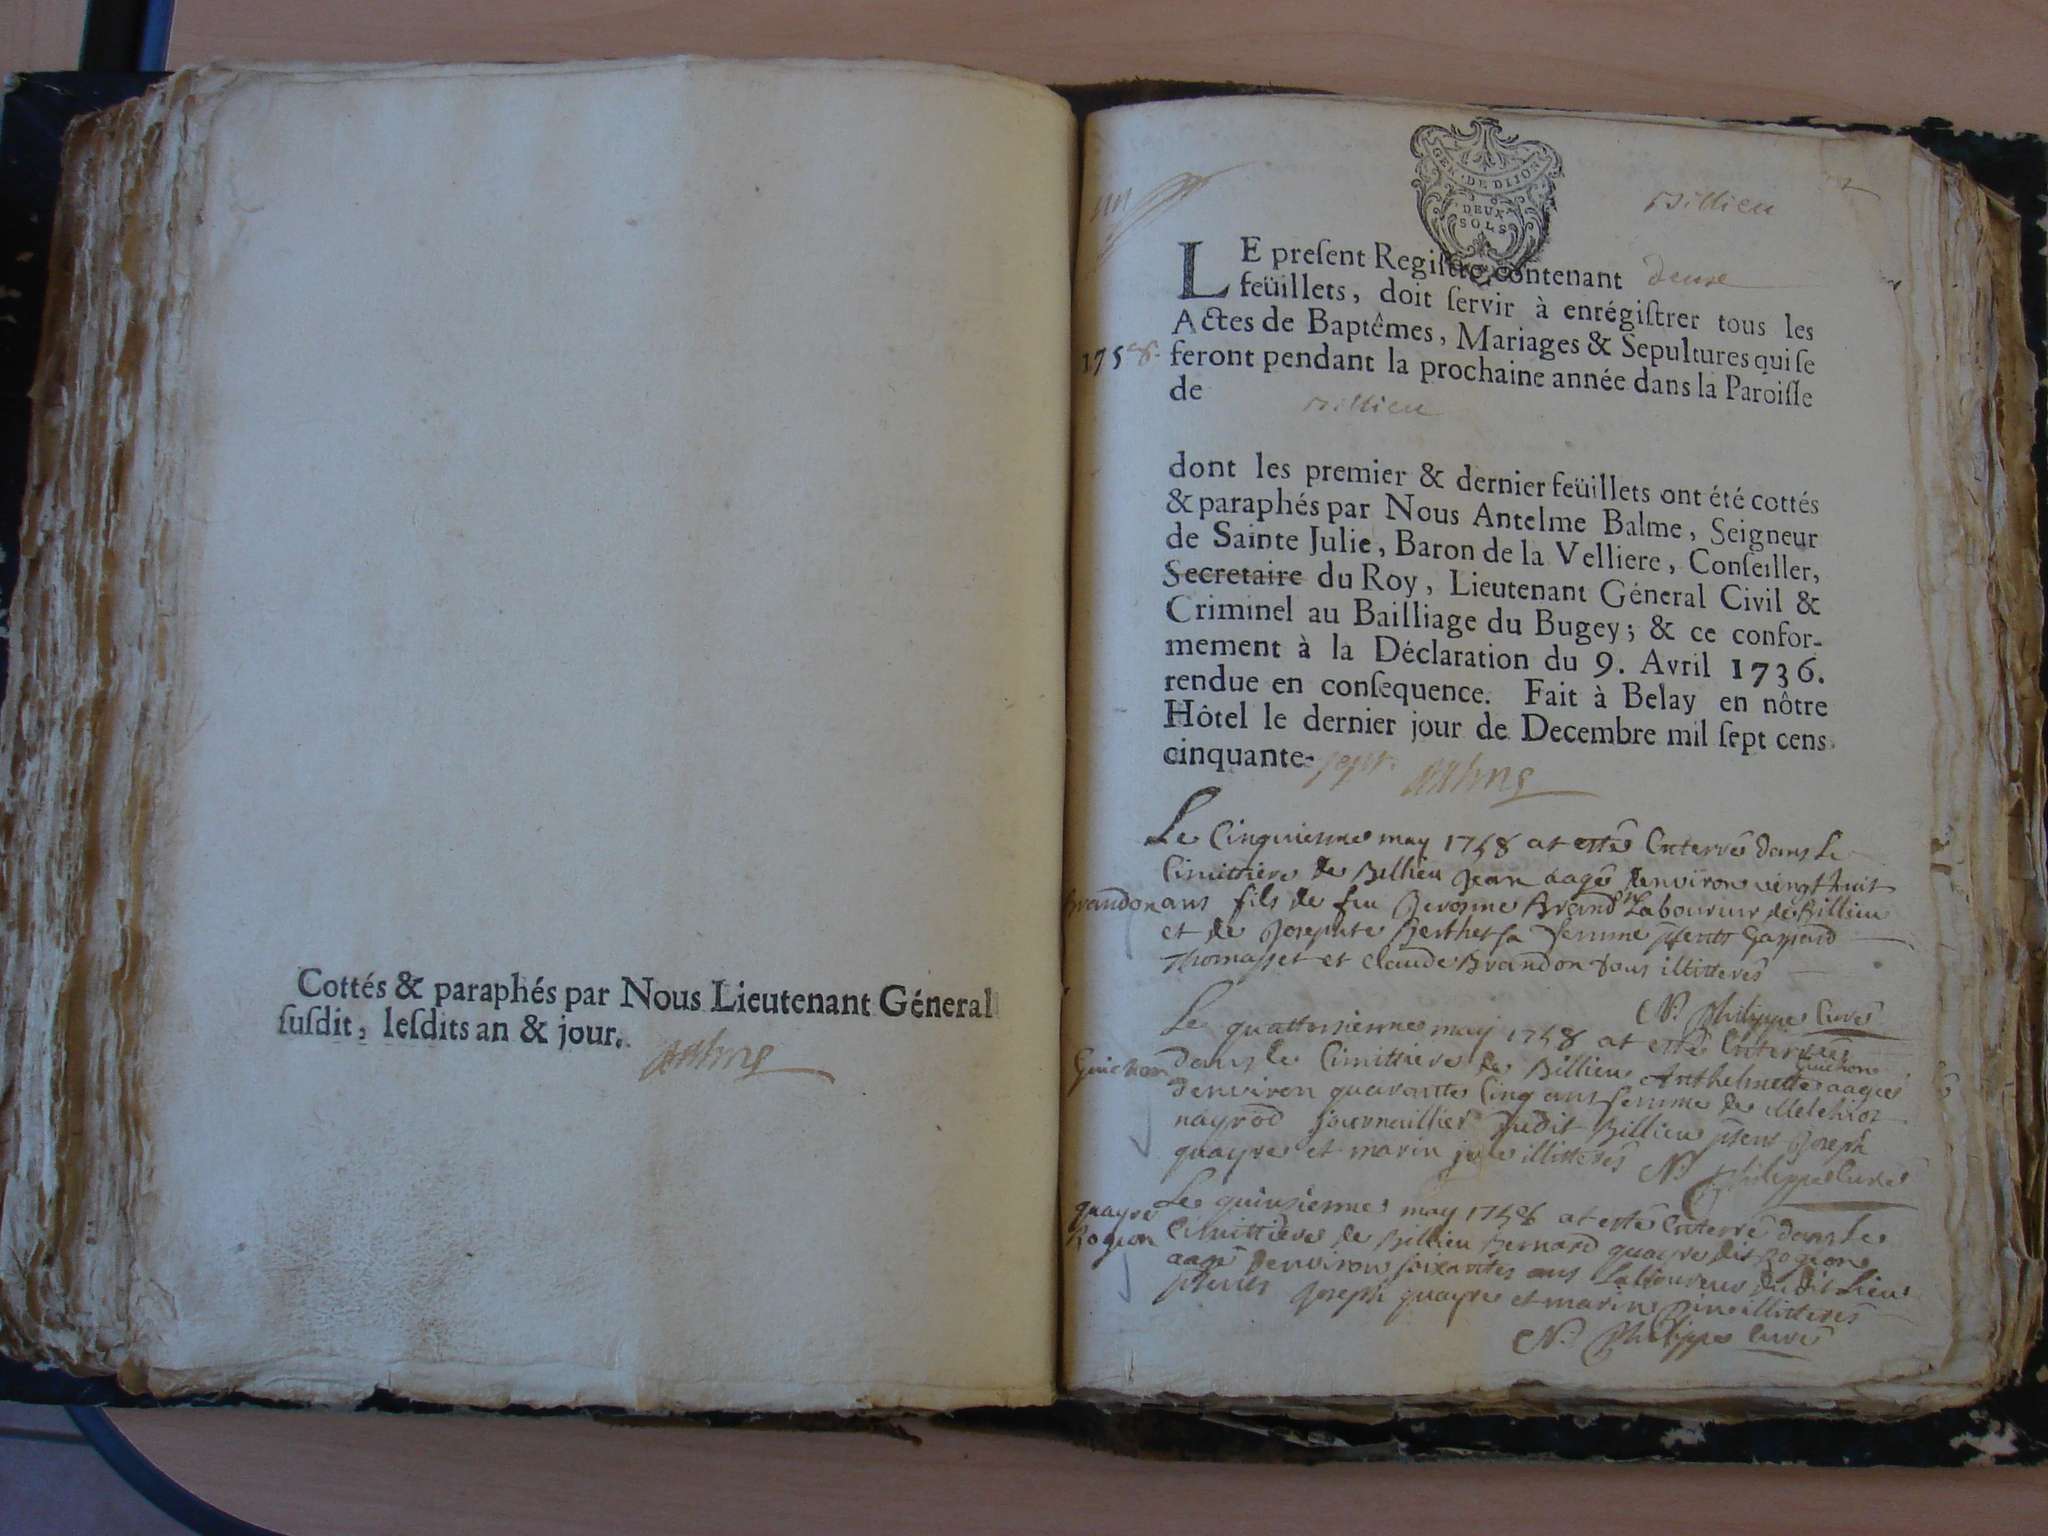 Cottés & paraphés par Nous Lieutenant Géneral
ſuſdit, leſdits an & jour.
GEN. DE DIION
DEUX
SOLS
Billieu
LE preſent Regiſtre contenant deux
feüillets, doit ſervir à enrégiſtrer tous les
Actes de Baptêmes, Mariages & Sepultures qui ſe
1758. feront pendant la prochaine année dans la Paroiſſe
de Billieu
dont les premier & dernier feüillets ont été cottés
& paraphés par Nous Antelme Balme, Seigneur
de Sainte Julie, Baron de la Velliere, Conſeiller,
Secretaire du Roy, Lieutenant Géneral Civil &
Criminel au Bailliage du Bugey; & ce confor-
mement à la Déclaration du 9. Avril 1736.
rendue en conſequence. Fait à Belay en nôtre
Hôtel le dernier jour de Decembre mil ſept cens
cinquante-sept.
Le Cinquieme may 1758 at esté Enterré dans le
Cimittiere de Billieu Jean aagé denviron vingt huit
Brandon ans fils de feu Jerosme Brandon Laboureur de Billieu
et de Josephte Berthet sa femme pñents Gaspard
Thomasset et Claude Brandon tous illitterés
N. Philippe Curé
Le quattorsieme may 1758 at esté Enterrée
Guichon dans le Cimittiere de Billieu Anthelmette Guichon aagée
denviron quarante Cinq ans femme de Melchior
nayrod journaillier dudit Billieu pñent Joseph
quayre et marin illitterés N. Philippe Curé
quayre Le quinsieme may 1758 at esté Enterré dans le
Rogion Cimittiere de Billieu Bernard quayre dit Rogion
aagé denviron soixantes ans Laboureur du dit Lieu
pñents Joseph quayre et marin illitterés
N. Philippe Curé